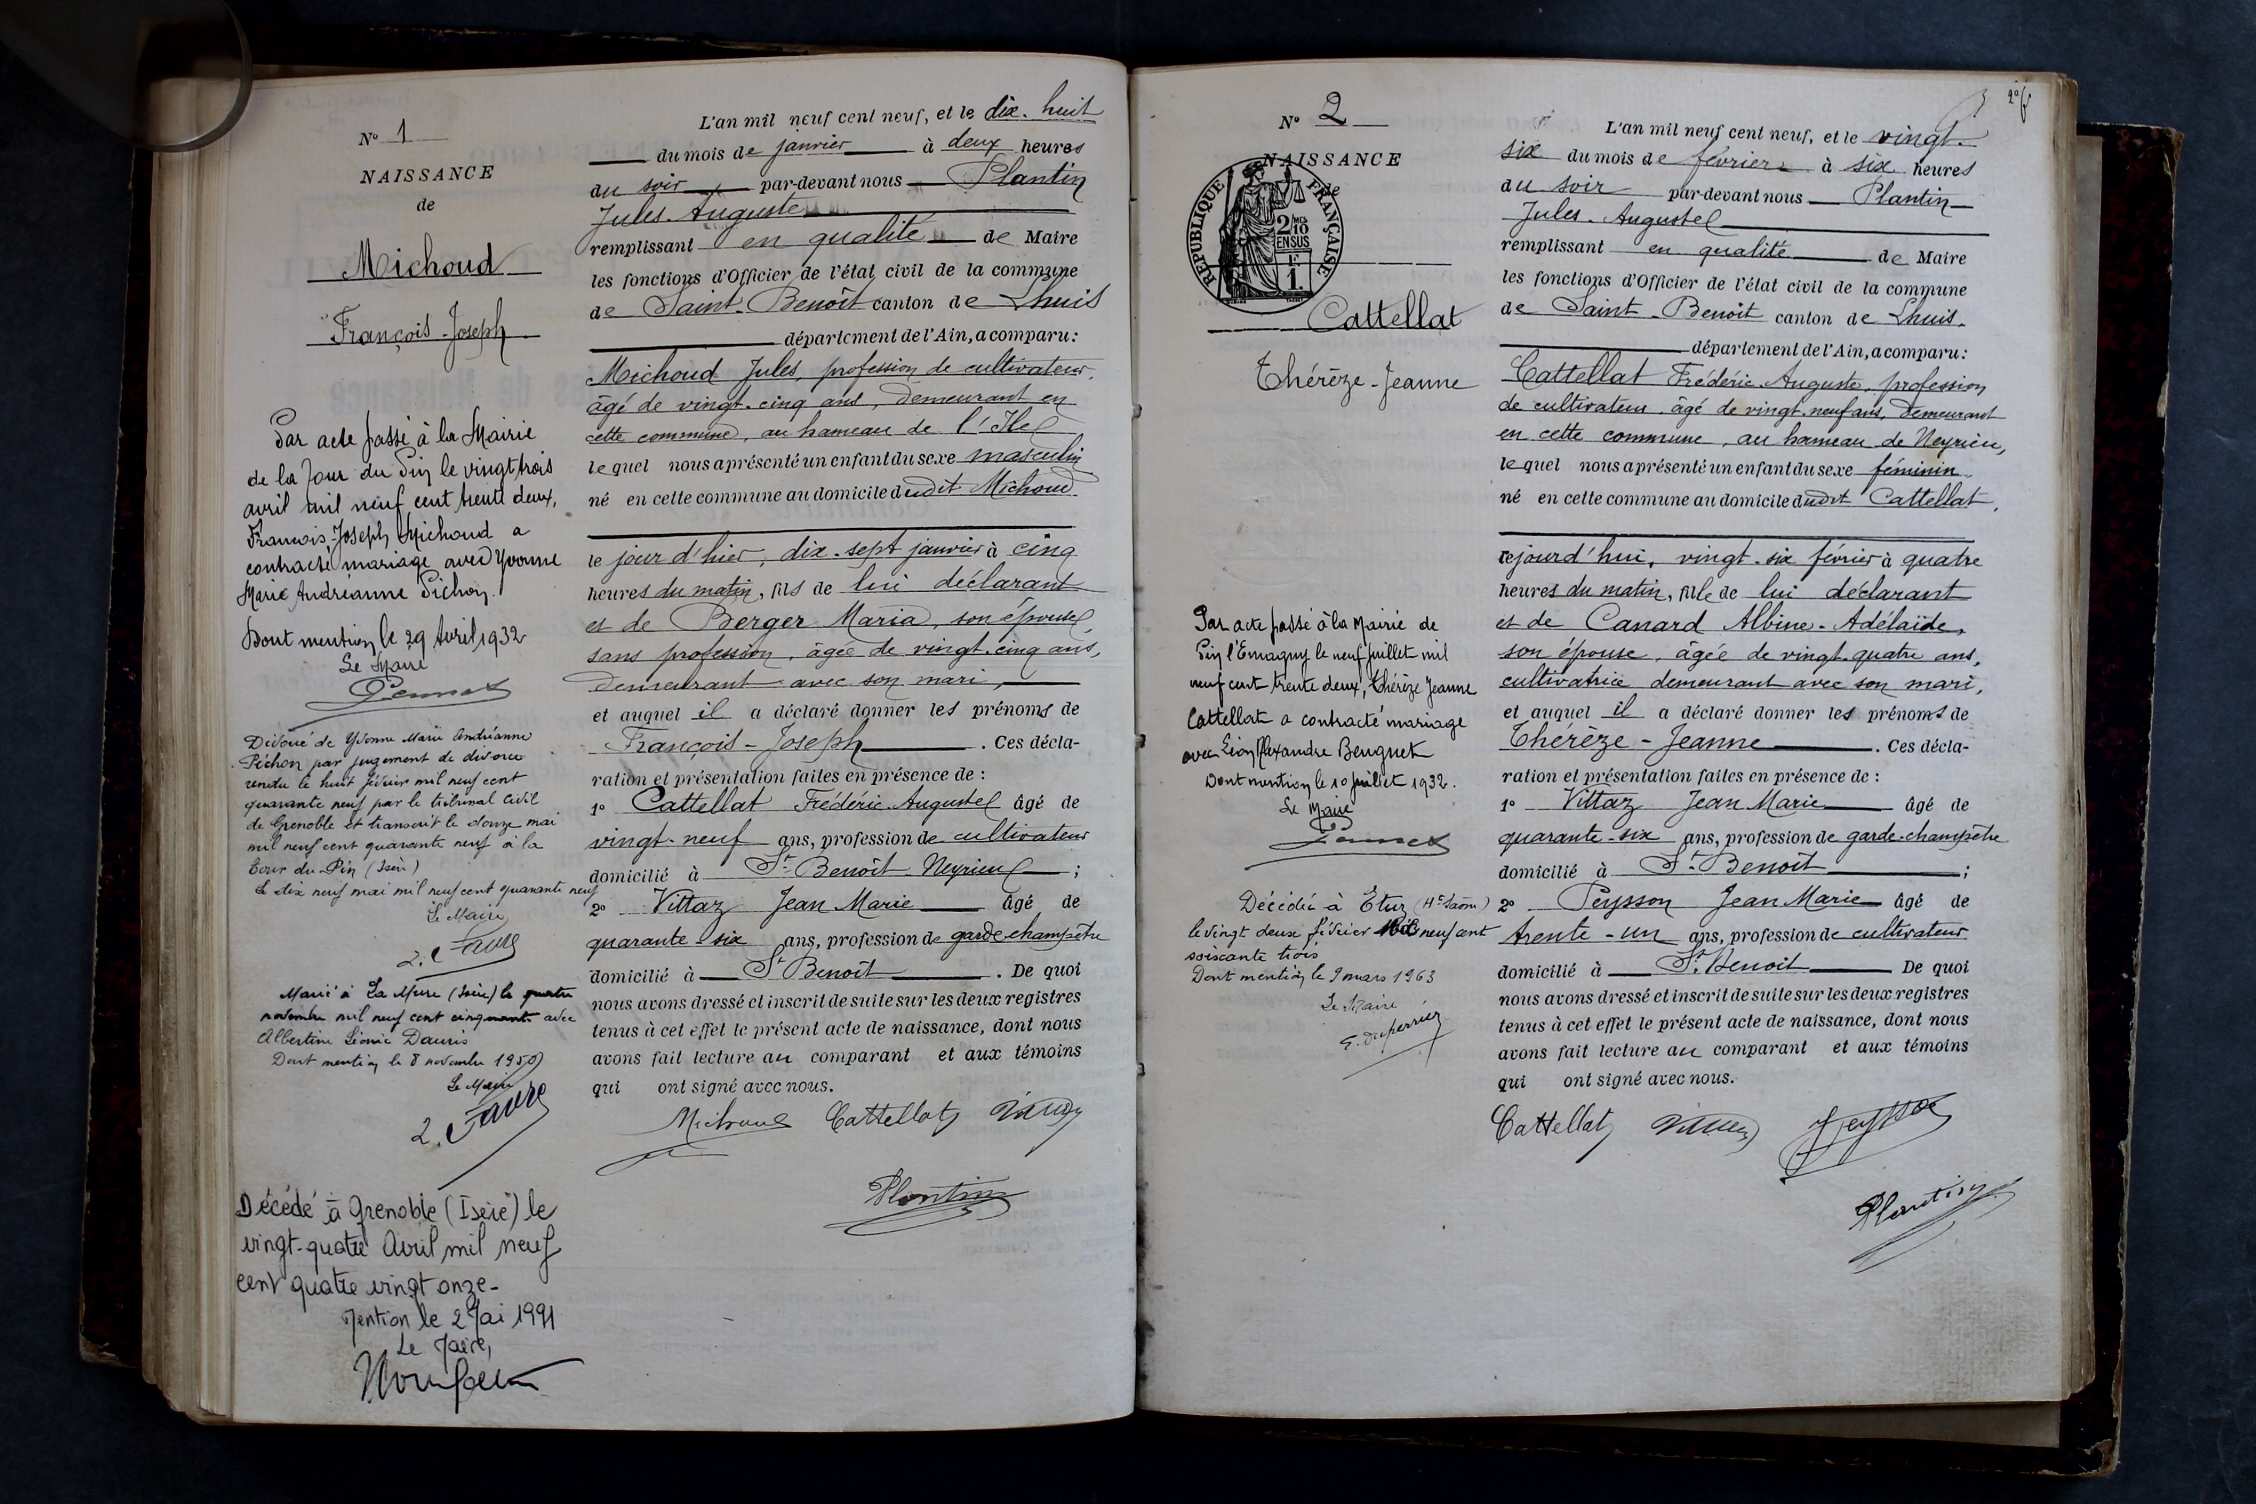 N° 1
NAISSANCE
de
Michoud
François-Joseph
Par acte passé à la Mairie
de la Tour du Pin le vingt trois
avril mil neuf cent trente deux,
François-Joseph Michoud a
contracté mariage avec Yvonne
Marie Andréanne Pichon.
Dont mention le 29 Avril 1932
Le Maire
Divorcé de Yvonne Marie Andréanne
Pichon par jugement de divorce
rendu le huit février mil neuf cent
quarante neuf par le tribunal Civil
de Grenoble et transcrit le douze mai
mil neuf cent quarante neuf à la
Tour du Pin (Isère)
Le dix neuf mai mil neuf cent quarante neuf
Le Maire
L. Favre
Marié à La Mure (Isère) le quatre
novembre mil neuf cent cinquante avec
Albertine Léonie Dauris
Dont mention le 8 novembre 1950
Le Maire
L. Favre
Décédé à Grenoble (Isère) le
vingt-quatre Avril mil neuf
cent quatre vingt onze-
Mention le 2 Mai 1991
Le Maire,
L'an mil neuf cent neuf, et le dix-huit
du mois de janvier à deux heures
du soir par-devant nous Plantin
Jules-Auguste
remplissant en qualité de Maire
les fonctions d'Officier de l'état civil de la commune
de Saint-Benoît canton de Lhuis
département de l'Ain, a comparu:
Michoud Jules, profession de cultivateur,
âgé de vingt-cinq ans, demeurant en
cette commune, au hameau de l'Ile
lequel nous a présenté un enfant du sexe masculin
né en cette commune au domicile dudit Michoud
le jour d'hier, dix-sept janvier à cinq
heures du matin, fils de lui déclarant
et de Berger Maria, son épouse,
sans profession, âgée de vingt-cinq ans,
demeurant avec son mari,
et auquel il a déclaré donner les prénoms de
François-Joseph. Ces décla-
ration et présentation faites en présence de :
1° Cattellat Frédéric-Auguste âgé de
vingt-neuf ans, profession de cultivateur
domicilié à St Benoît Neyrieu ;
2° Vittaz Jean Marie âgé de
quarante-six ans, profession de garde-champêtre
domicilié à St Benoît. De quoi
nous avons dressé et inscrit de suite sur les deux registres
tenus à cet effet le présent acte de naissance, dont nous
avons fait lecture au comparant et aux témoins
qui ont signé avec nous.
Michoud Cattellat Vittaz
Plantin
2
N° 2
NAISSANCE
de
REPUBLIQUE FRANÇAISE
2/10 MES
EN SUS
F.
1.
Cattellat
Thérèze-Jeanne
Par acte passé à la Mairie de
Pin l'Emagny le neuf juillet mil
neuf cent trente deux, Thérèze Jeanne
Cattellat a contracté mariage
avec Léon Alexandre Beuguet
Dont mention le 10 juillet 1932.
Le Maire
Décédée à Etuz (Hte Saône)
le vingt deux février mil neuf cent
soixante trois
Dont mention le 9 mars 1963
Le Maire
E. Duperrier
L'an mil neuf cent neuf, et le vingt-
six du mois de février à six heures
du soir par-devant nous Plantin
Jules-Auguste
remplissant en qualité de Maire
les fonctions d'Officier de l'état civil de la commune
de Saint-Benoît canton de Lhuis.
département de l'Ain, a comparu:
Cattellat Frédéric-Auguste, profession
de cultivateur, âgé de vingt-neuf ans, demeurant
en cette commune, au hameau de Neyrieu,
lequel nous a présenté un enfant du sexe féminin
né en cette commune au domicile dudit Cattellat,
cejourd'hui, vingt-six février à quatre
heures du matin, fille de lui déclarant
et de Canard Albine-Adélaïde,
son épouse, âgée de vingt-quatre ans,
cultivatrice demeurant avec son mari,
et auquel il a déclaré donner les prénoms de
Thérèze-Jeanne. Ces décla-
ration et présentation faites en présence de :
1° Vittaz Jean Marie âgé de
quarante-six ans, profession de garde-champêtre
domicilié à St Benoît ;
2° Peysson Jean Marie âgé de
trente-un ans, profession de cultivateur
domicilié à St Benoit De quoi
nous avons dressé et inscrit de suite sur les deux registres
tenus à cet effet le présent acte de naissance, dont nous
avons fait lecture au comparant et aux témoins
qui ont signé avec nous.
Cattellat Vittaz Peysson
Plantin